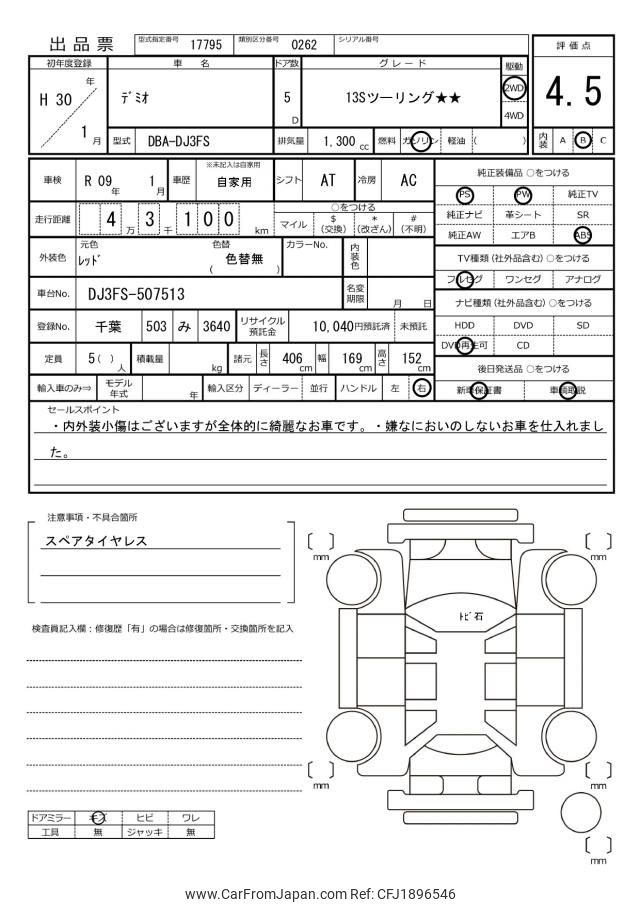 出品票 型式指定番号 17795 類別区分番号 0262 シリアル番号
評価点
4.5
初年度登録 車名 ドア数 グレード 駆動
H 30 年 1 月 デミオ 5 D 13Sツーリング★★ 2WD 4WD
型式 DBA-DJ3FS 排気量 1,300 cc 燃料 ガソリン 軽油 ( ) 内装 A B C
車検 R 09 年 1 月 車歴 ※未記入は自家用 自家用 シフト AT 冷房 AC
純正装備品 ○をつける
PS PW 純正TV
純正ナビ 革シート SR
純正AW エアB ABS
走行距離 4 万 3 千 1 0 0 km ○をつける
マイル $ (交換) * (改ざん) # (不明)
外装色 元色 レッド 色替 ( 色替無 ) カラーNo. 内装色
TV種類(社外品含む) ○をつける
フルセグ ワンセグ アナログ
車台No. DJ3FS-507513 名変期限 月 日
ナビ種類(社外品含む) ○をつける
HDD DVD SD
DVD再生可 CD
登録No. 千葉 503 み 3640 リサイクル預託金 10,040円預託済 未預託
定員 5( ) 人 積載量 kg 諸元 長さ 406 cm 幅 169 cm 高さ 152 cm
後日発送品 ○をつける
新車保証書 車輌取説
輸入車のみ⇒ モデル年式 年 輸入区分 ディーラー 並行 ハンドル 左 右
セールスポイント
・内外装小傷はございますが全体的に綺麗なお車です。・嫌なにおいのしないお車を仕入れまし
た。
注意事項・不具合箇所
スペアタイヤレス
検査員記入欄：修復歴「有」の場合は修復箇所・交換箇所を記入
〔 〕 mm
〔 〕 mm
トビ石
〔 〕 mm
〔 〕 mm
〔 〕 mm
ドアミラー キズ ヒビ ワレ
工具 無 ジャッキ 無
www.CarFromJapan.com Ref: CFJ1896546